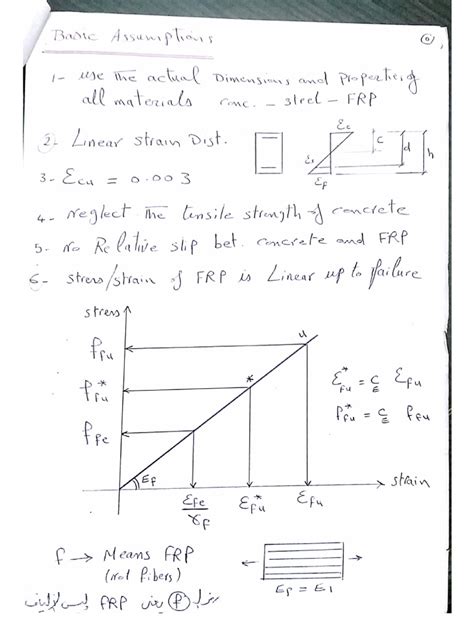 Basic Assumptions
1- use the actual Dimensions and Properties of
all materials conc. - steel - FRP
2- Linear strain Dist.
εc
c
d
h
εs
εf
3- εcu = 0.003
4- neglect the tensile strength of concrete
5- no Relative slip bet. concrete and FRP
6- stress/strain of FRP is Linear up to failure
stress
u
ffu
*
f*fu
ffe
ε*fu = CE εfu
f*fu = CE ffu
Ef
strain
εfe/γf
ε*fu
εfu
f → Means FRP
(not Fibers)
Ef = E1
f يعنى FRP ليس الالياف